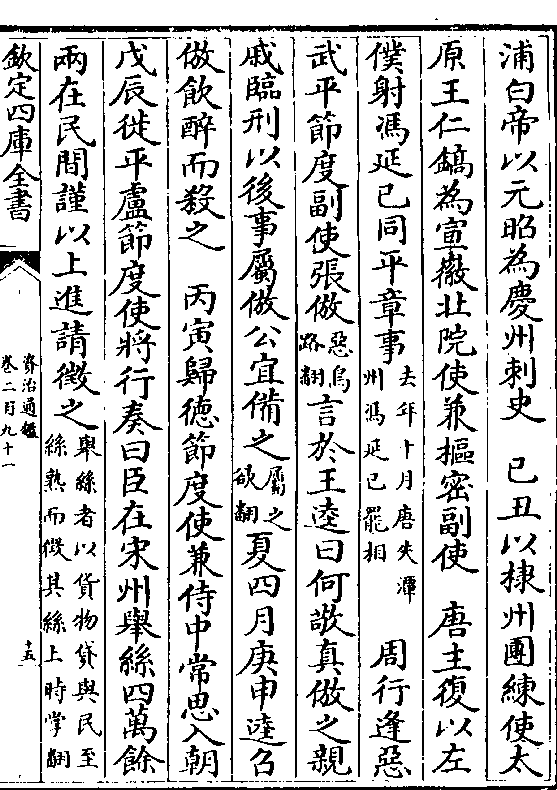 浦白帝以元昭為慶州刺史　己丑以棣州團練使太
原王仁鎬為宣徽北院使兼樞密副使　唐主復以左
僕射馮延已同平章事去年十月唐失潭州馮延已罷相　周行逢惡
武平節度副使張倣惡烏路翻言於王逵曰何敬真倣之親
戚臨刑以後事屬倣公宜備之屬之欲翻夏四月庚申逵召
倣飲醉而殺之　丙寅歸德節度使兼侍中常思入朝
戊辰徙平盧節度使將行奏曰臣在宋州舉絲四萬餘
兩在民間謹以上進請徵之舉絲者以貨物貸與民至絲熟而徵其絲上時掌翻
欽定四庫全書
資治通鑑
卷二百九十一
十五